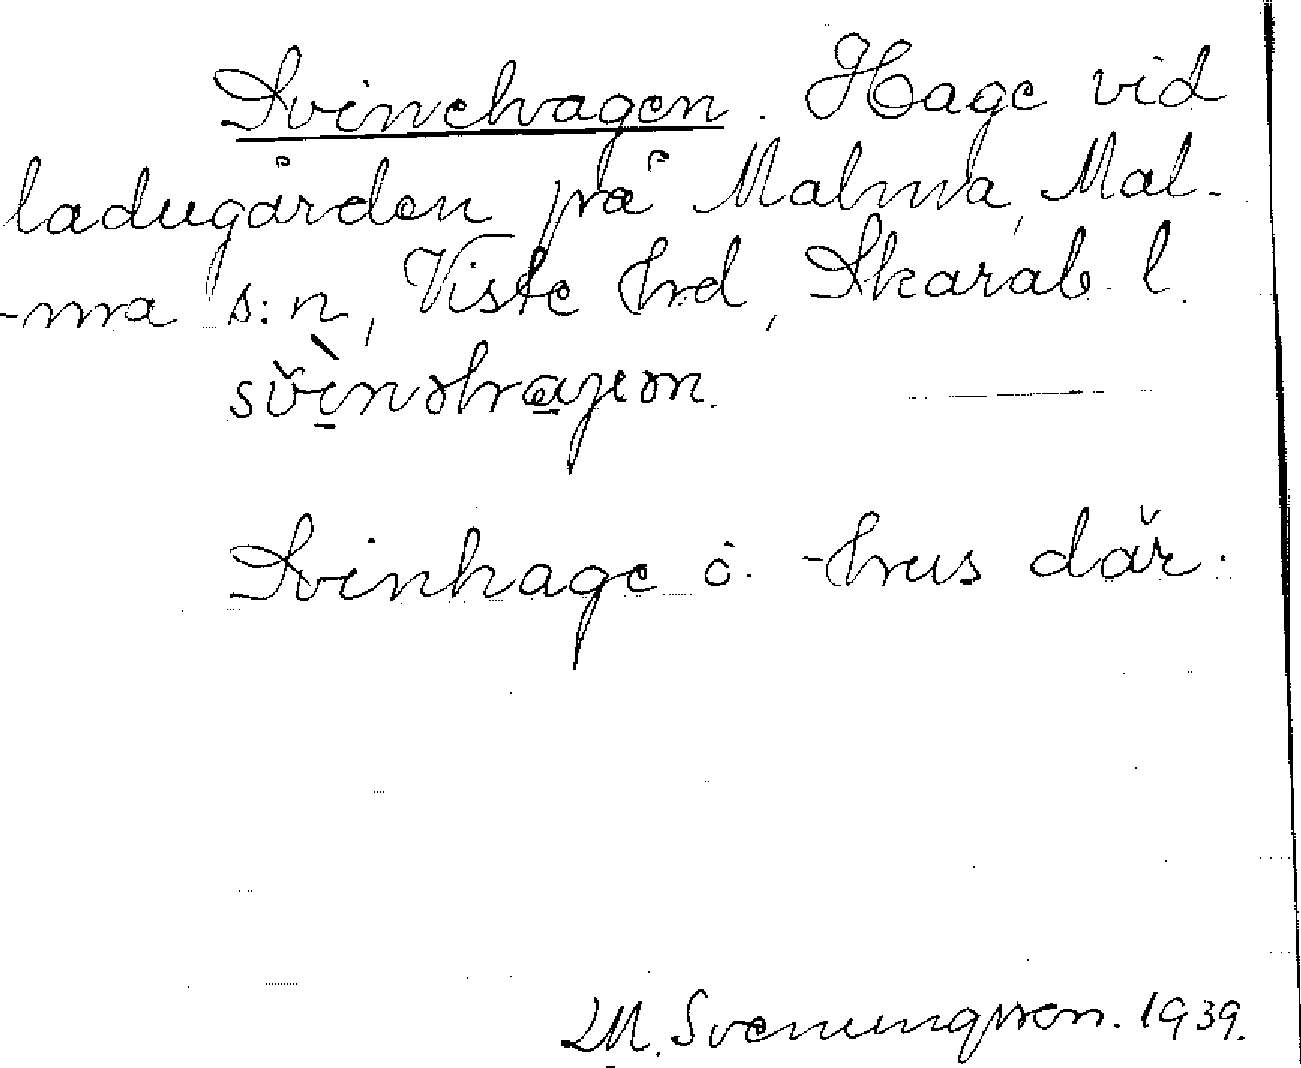 Svinehagen. Hage vid
ladugården på Malma, Mal-
-ma s:n, Viste hrd, Skarab. l.
Svinhage o. -hus där.
M. Svenungsson. 1939.